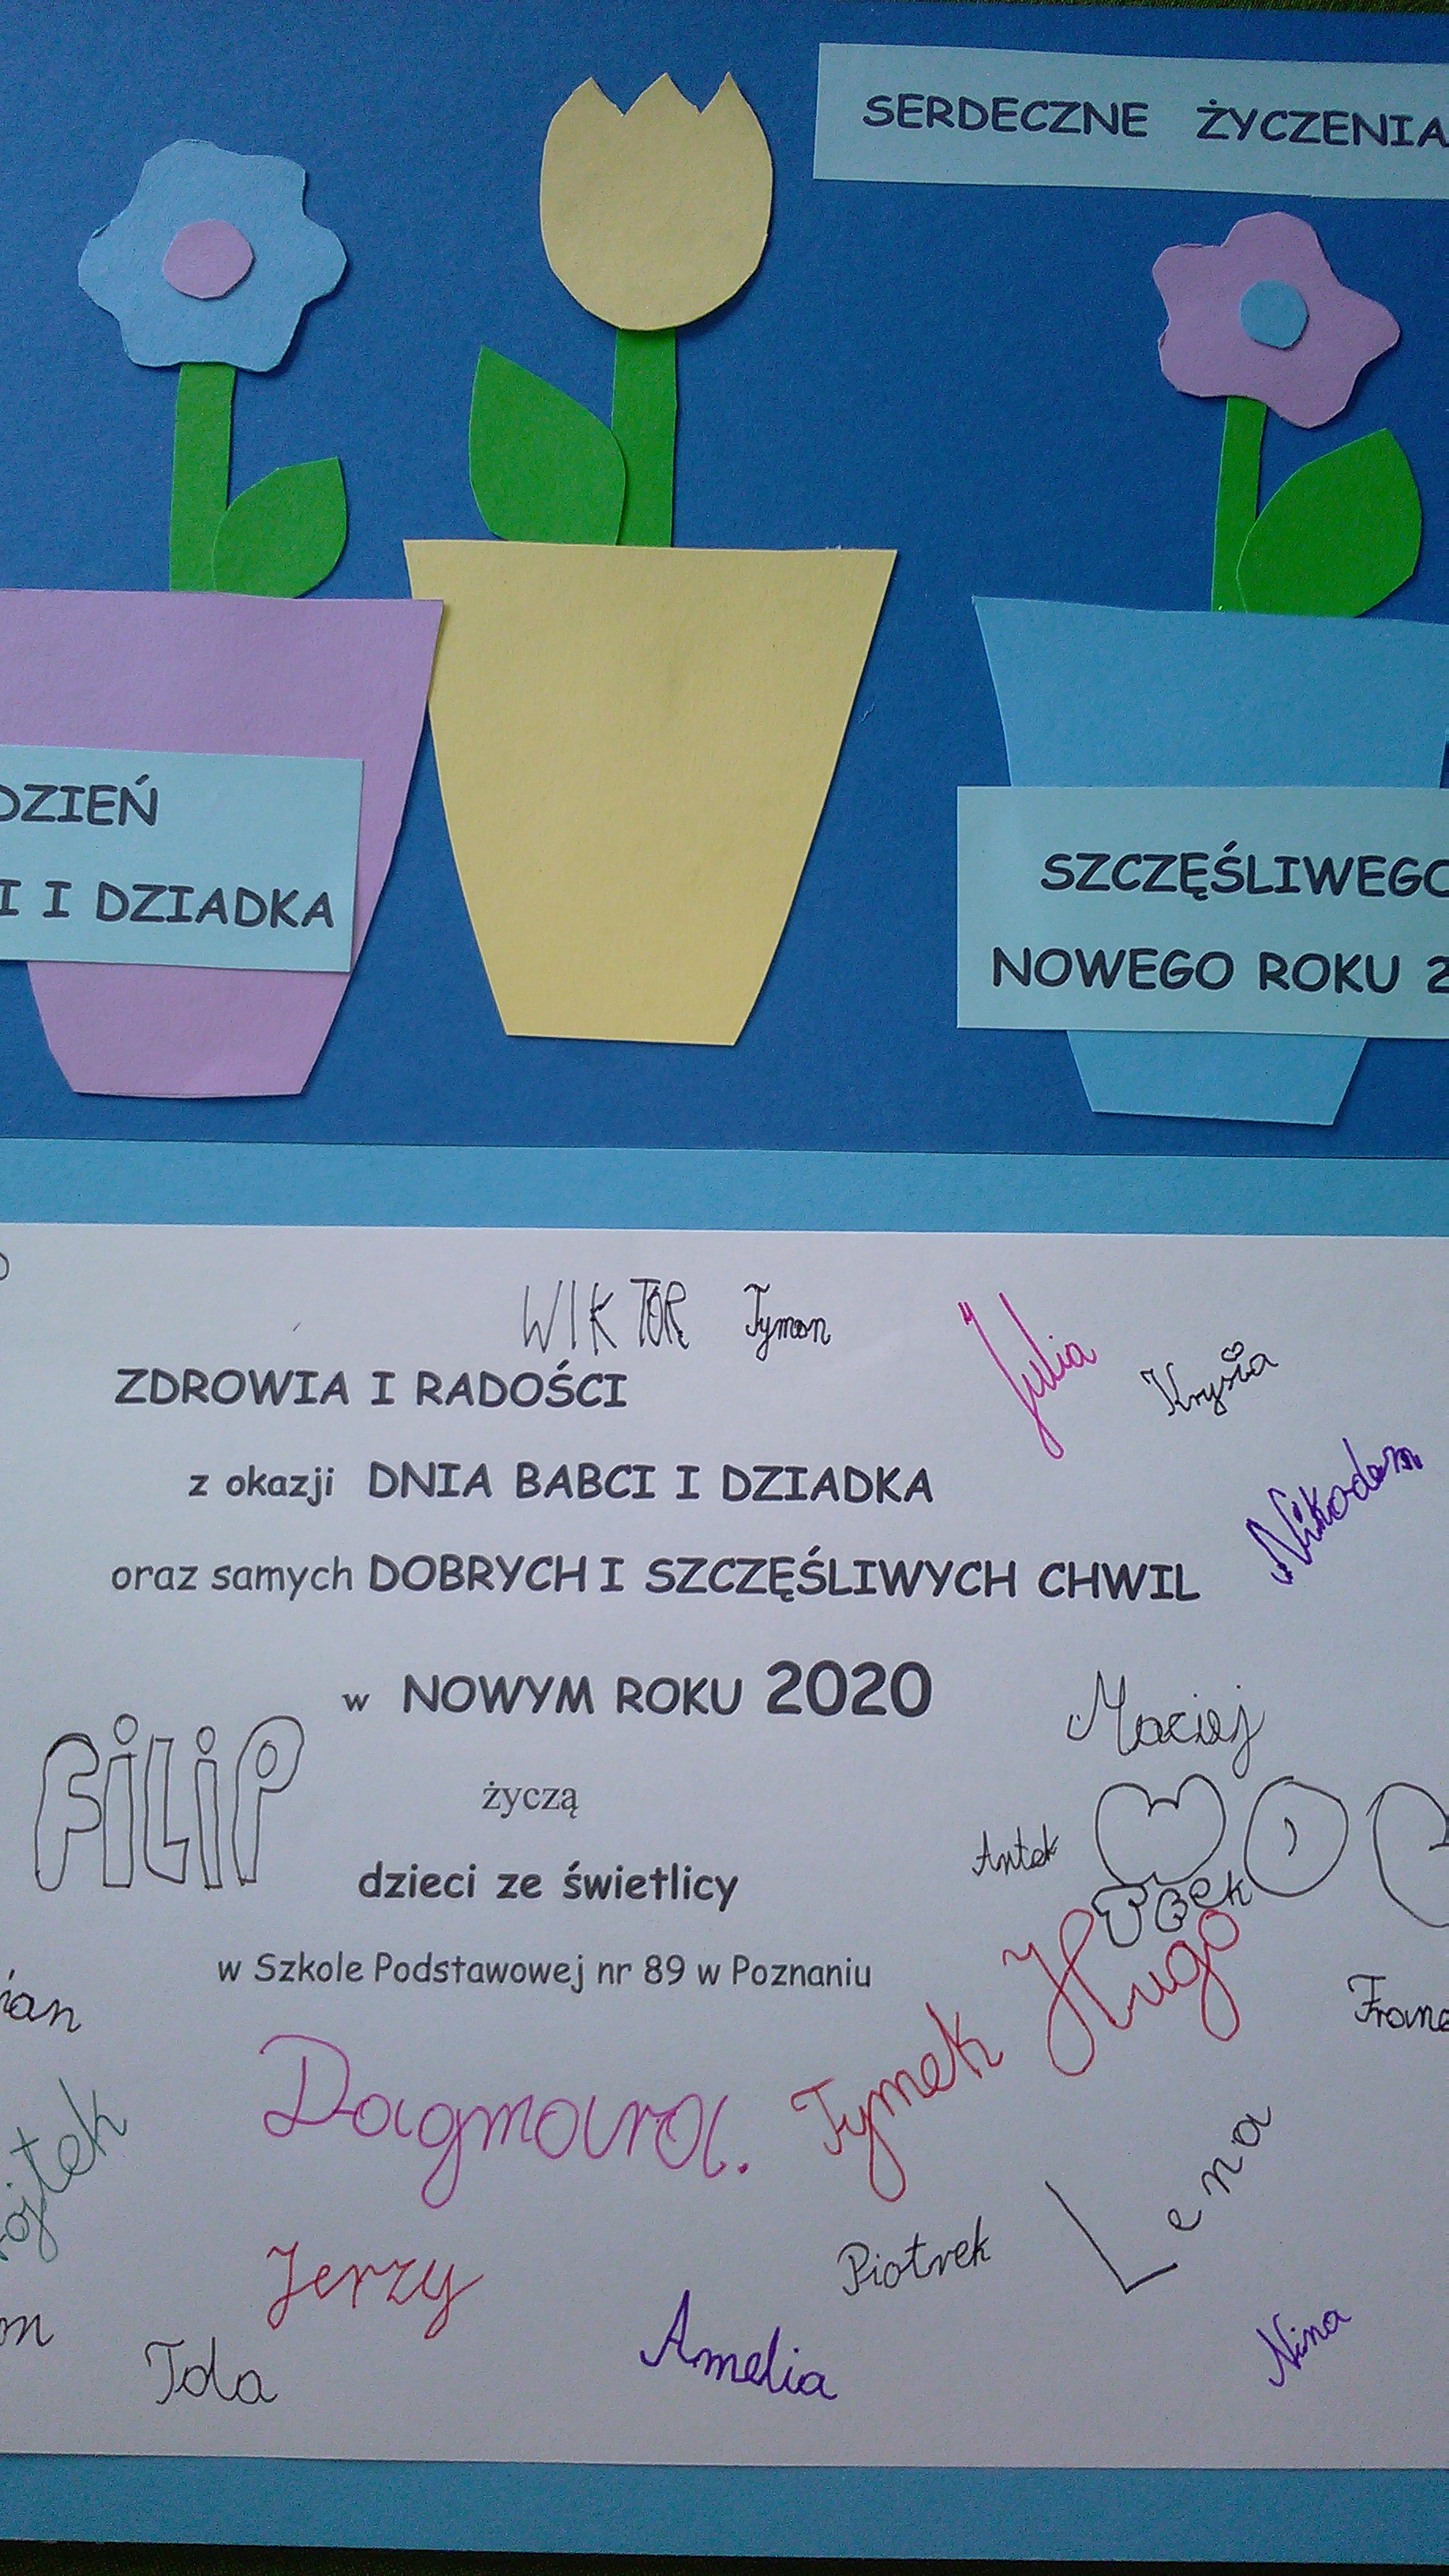 SERDECZNE ŻYCZENIA
DZIEŃ
I I DZIADKA
SZCZĘŚLIWEGO
NOWEGO ROKU 2
WIKTOR Tymon
Julia
Krysia
ZDROWIA I RADOŚCI
z okazji DNIA BABCI I DZIADKA
Nikodem
oraz samych DOBRYCH I SZCZĘŚLIWYCH CHWIL
w NOWYM ROKU 2020
Maciej
FILIP
życzą
Antek
dzieci ze świetlicy
w Szkole Podstawowej nr 89 w Poznaniu
Hugo
Tymek
Franc
ian
Dagmara.
ojtek
Lena
Jerzy
Piotrek
m
Tola
Amelia
Nina